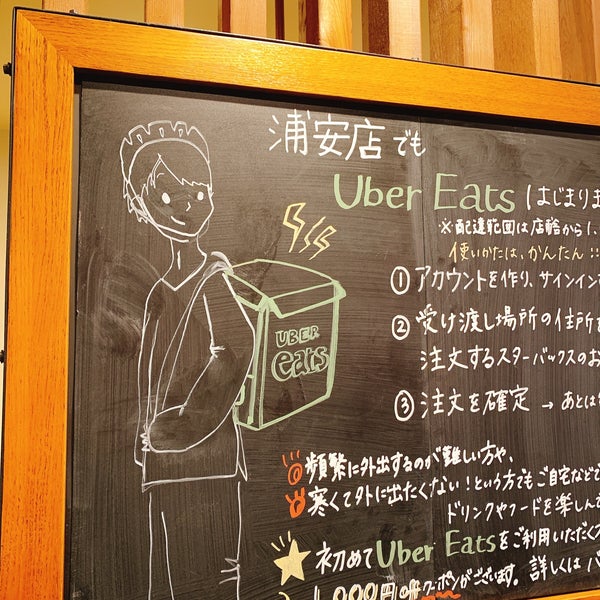 浦安店でも
Uber Eats はじまりま
※配達範囲は店舗から1.
使いかたは、かんたん!!
① アカウントを作り、サインイン
② 受け渡し場所の住所を
注文するスターバックスのお
③ 注文を確定 → あとは
UBER
eats
頻繁に外出するのが難しい方や、
寒くて外に出たくない!という方でもご自宅などで
ドリンクやフードを楽しん
初めてUber Eatsをご利用いただく
1,000円 クーポンがございます。詳しくは